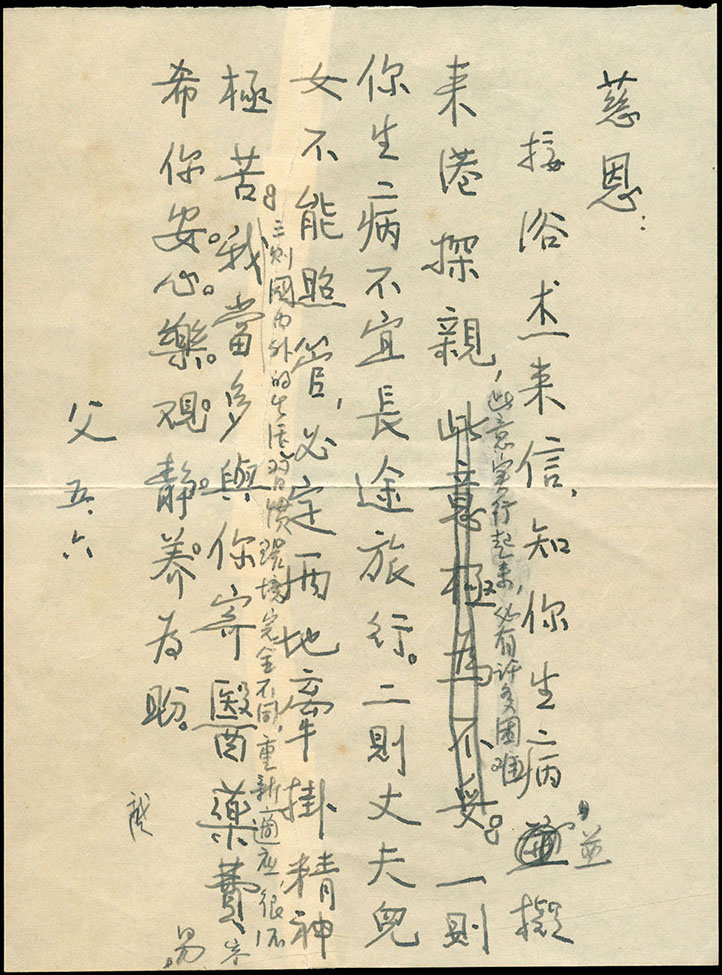 慈恩：
接浴杰来信，知你生病，並擬
来港探親，此意極為不妥。一則
此意実行起来，必有许多困难
你生病不宜長途旅行。二則丈夫兒
女不能照管，必定両地牽掛精神
三則國内外的生活習慣環境完全不同，重新適应，很不容易。
極苦。我當多與你寄醫藥費
希你安心。樂观。静养为盼。
父 五、六